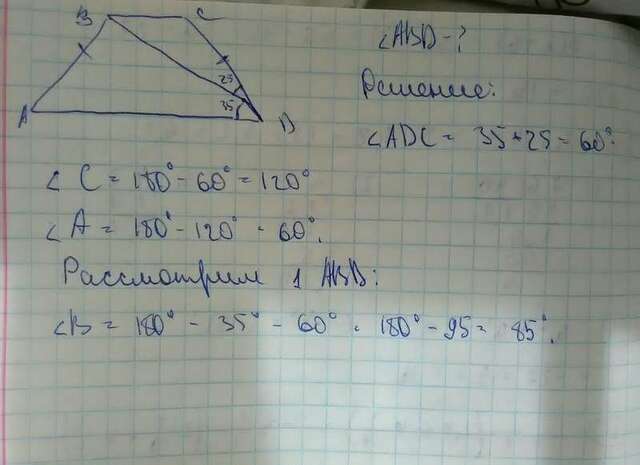 B C
25
35
A D
∠ABD - ?
Решение:
∠ADC = 35 + 25 = 60°.
∠C = 180° - 60° = 120°
∠A = 180° - 120° = 60°.
Рассмотрим △ ABD:
∠B = 180° - 35° - 60° = 180° - 95 = 85°.